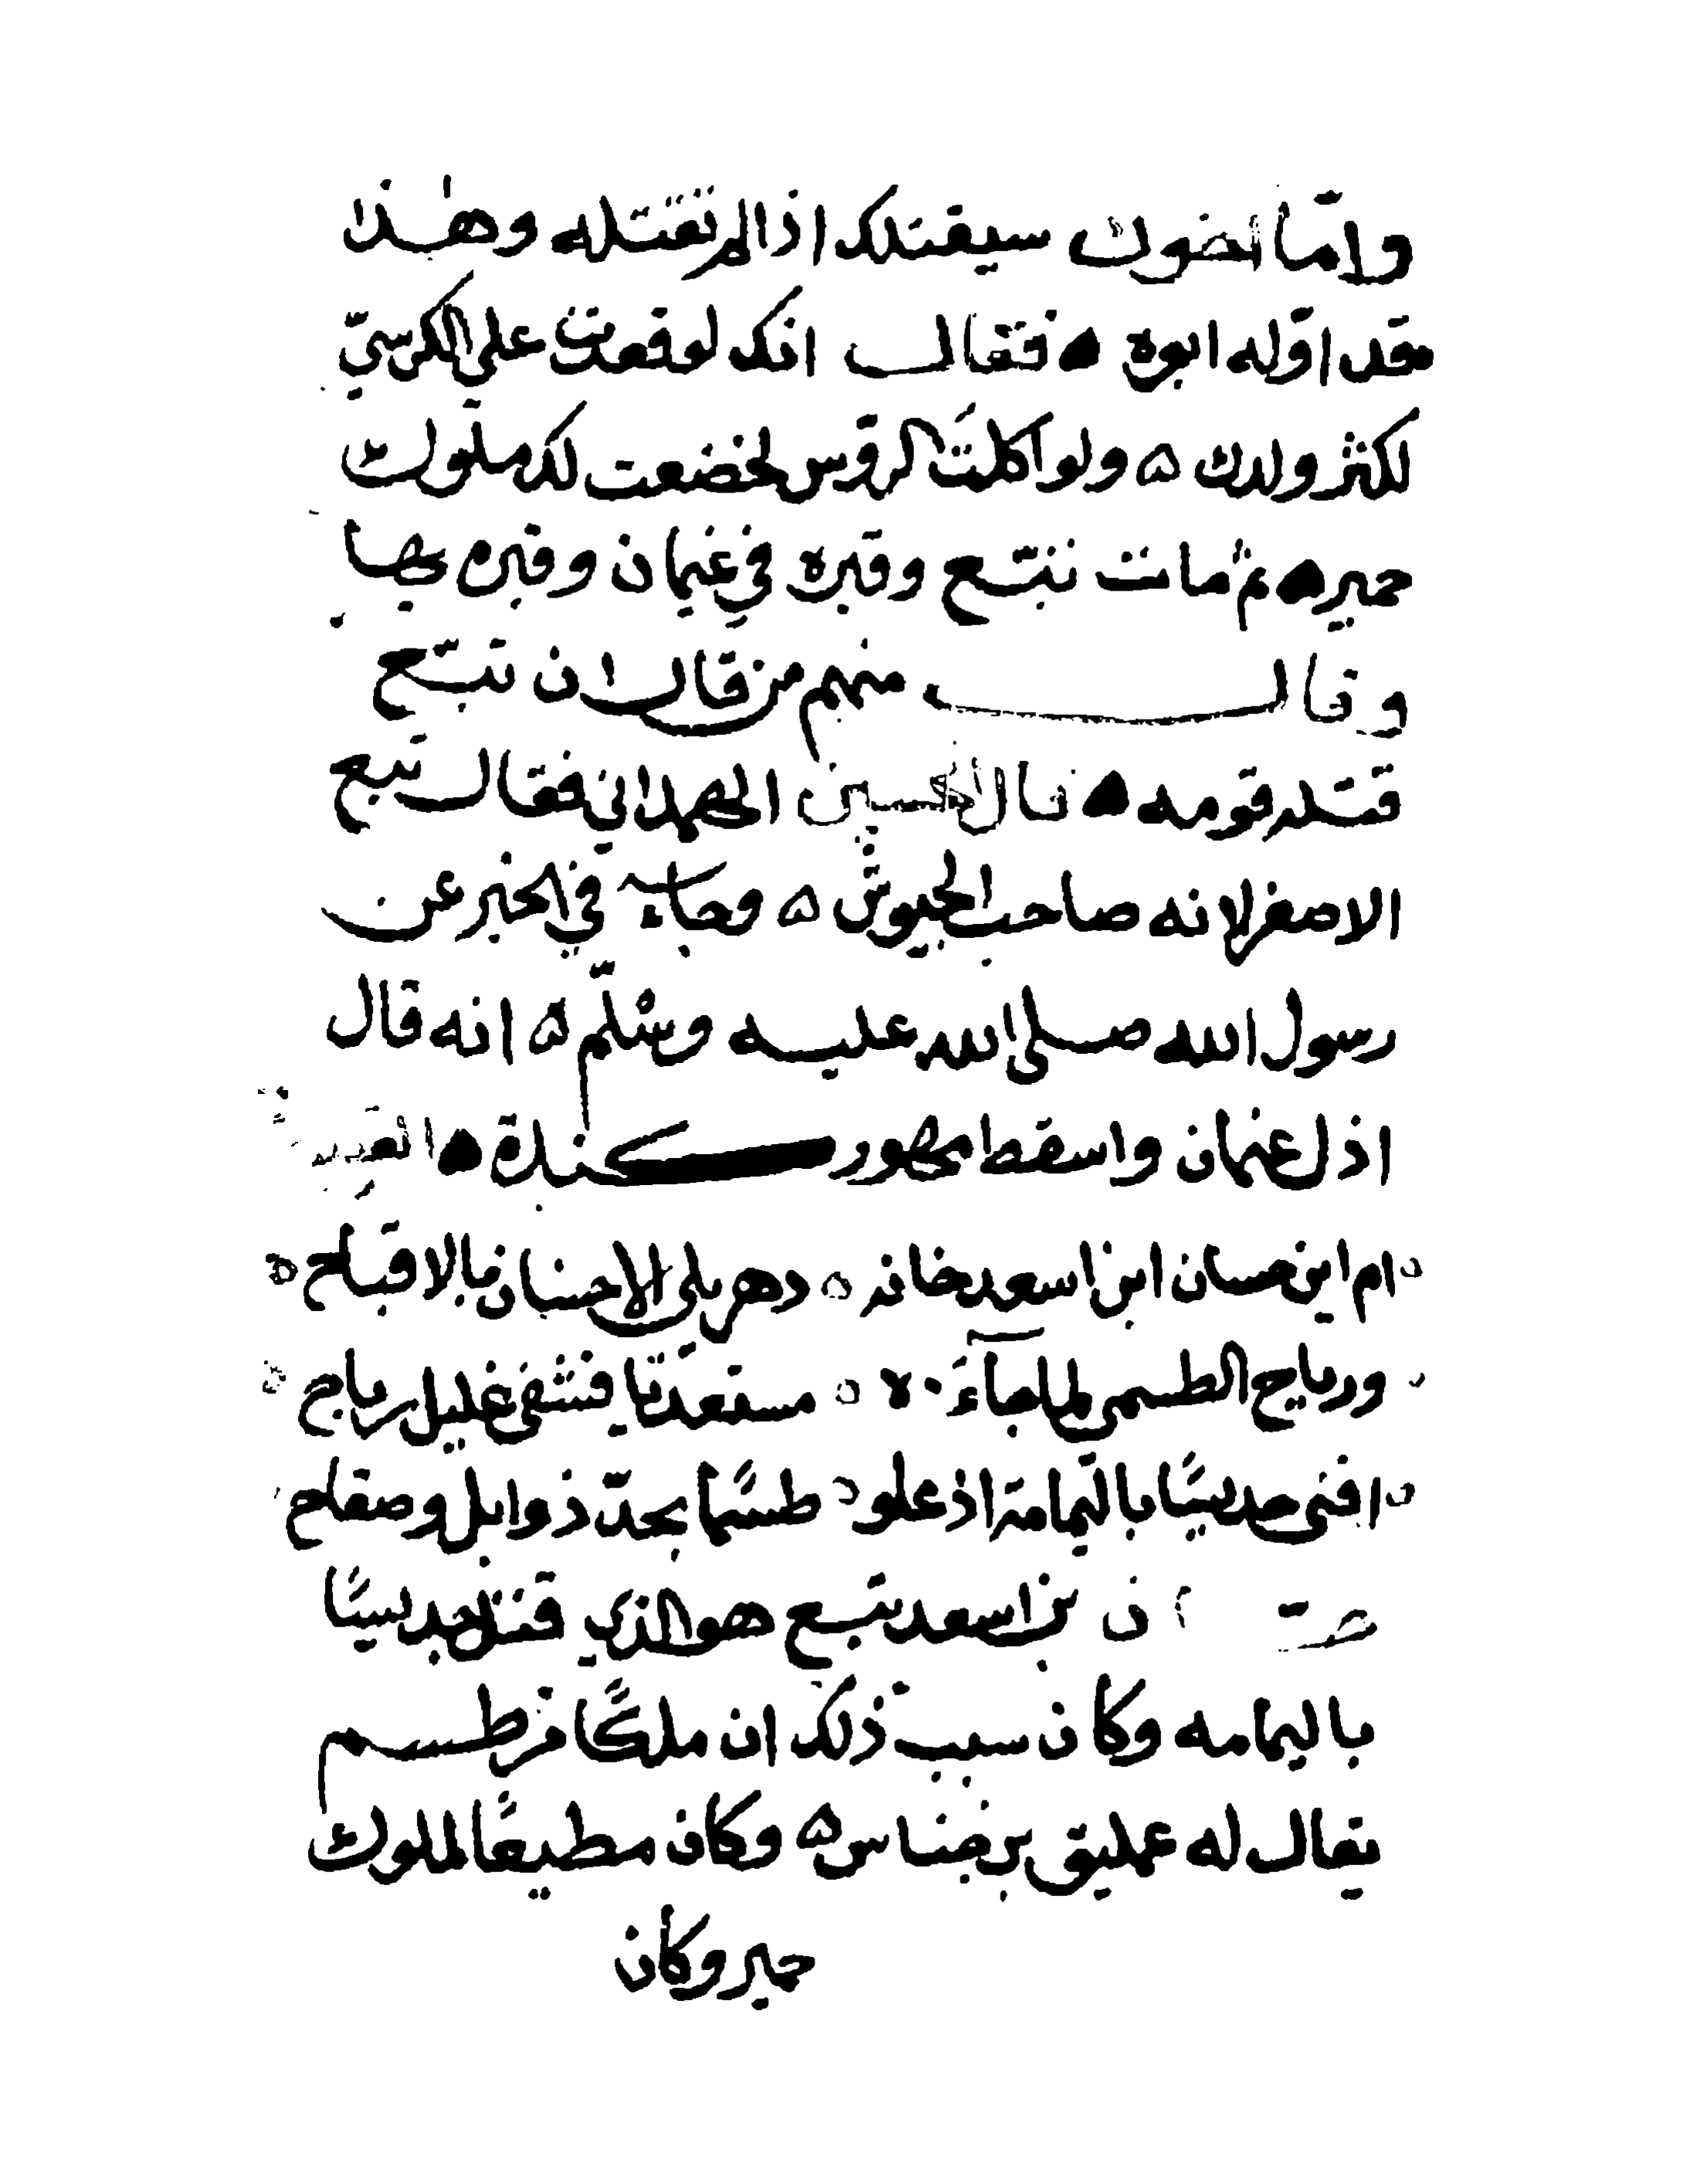 واما اخوك سيقتلك اذا لم تقتله وهذا
قد اوله ابوه ۵ فقال انك لو قعدت على الكرسيّ
لكثر ولدك ۵ ولو اكلت الروس لخضعت لك ملوك
حمير ۵ ثم مات تبّع وقبره في غيمان وقبره بها
وقال منهم من قال ان تبّع
قتله قومه ۵ قال الحسين الهمداني فقال تبع
الاصغر لانه صاحب الجيوش ۵ وجآء في الخبر عن
رسول الله صلى الله عليه وسلّم ۵ انه قال
اذل غيمان واسقط امهور كندة ۵
ام اين حسان ابن اسعد خانه ۵ دهر بالاقباح
ورياح الطسمي لما جآء ۵ مستعديا فشفى غليل رياح
افنى جديسًا باليمامة اذ علو ۵ طسمًا بحدّ ذوابل وصفاح
بن اسعد تبع هو الذي قتل جديسًا
باليمامه وكان سبب ذلك ان ملكًا من طسم
يقال له عمليق بن حناس ۵ وكان مطيعًا لملوك
حمير وكان